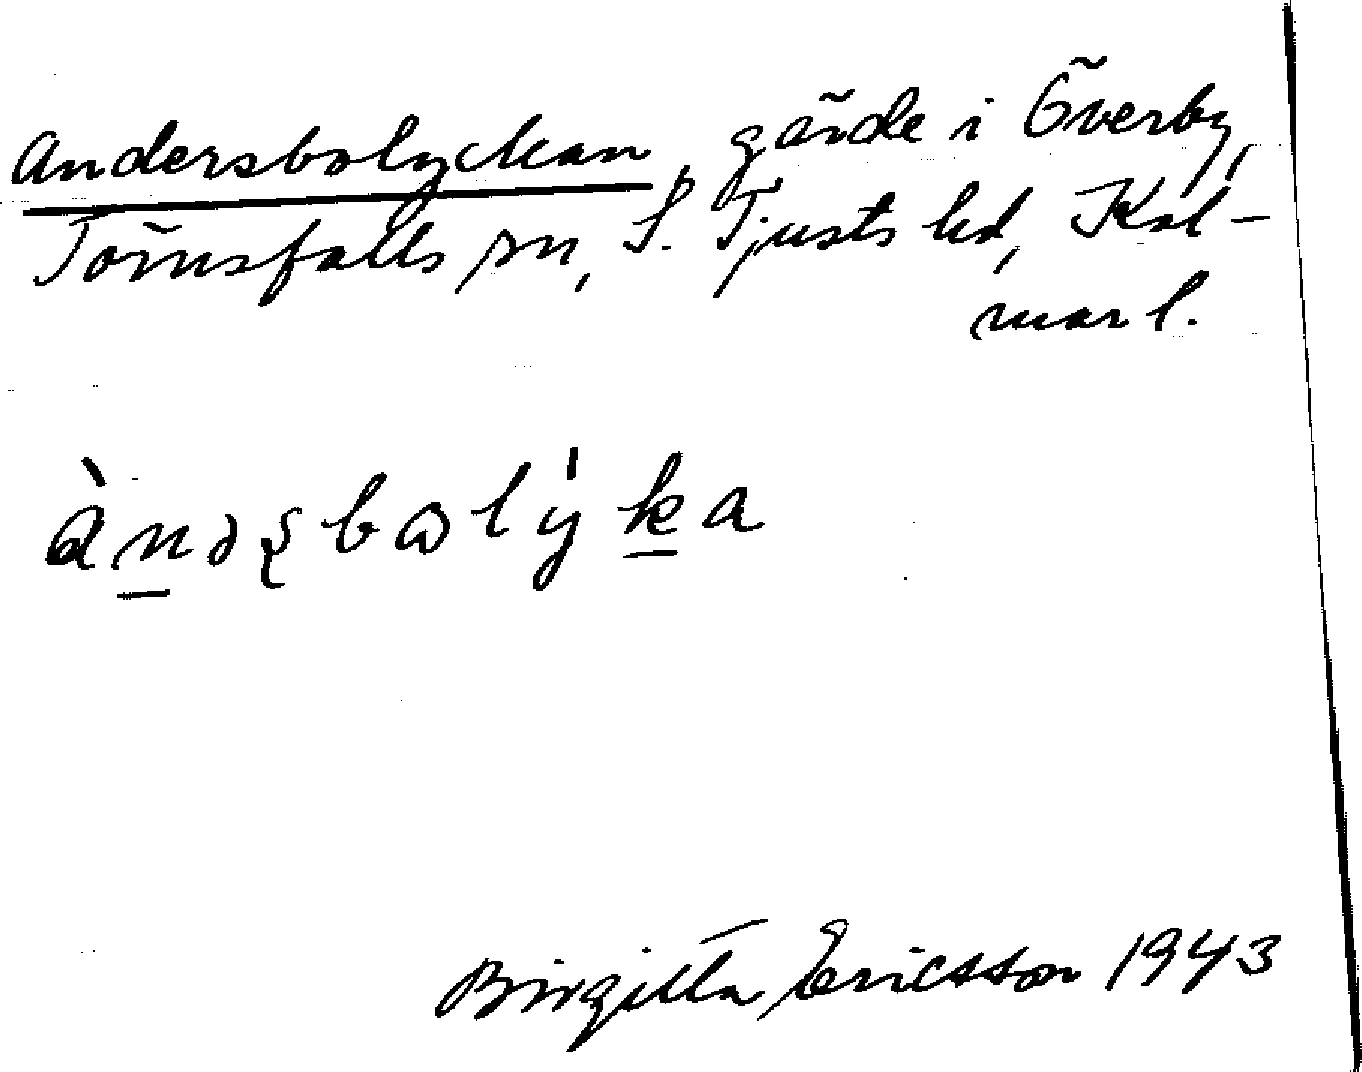 Andersbolyckan, gärde i Överby,
Törnsfalls sn, S. Tjusts hd, Kal-
mar l.
Birgitta Ericsson 1943